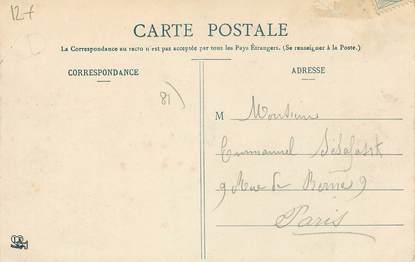 127
CARTE POSTALE
La Correspondance au recto n'est pas acceptée par tous les Pays Étrangers. (Se renseigner à la Poste.)
CORRESPONDANCE
ADRESSE
81)
M Monsieur
Emmanuel
9 Rue de Berne 9
Paris